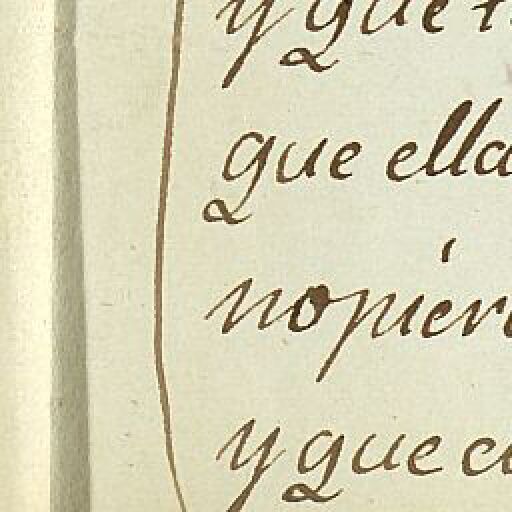 y que
que ella
no pier
y que c